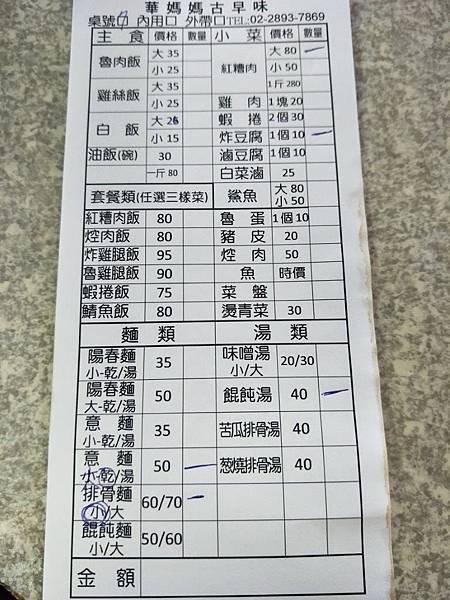 華媽媽古早味
桌號7 內用口 外帶口TEL:02-2893-7869
主 食 價格 數量 小 菜 價格 數量
魯肉飯 大 35 小 25 紅糟肉 大 80 小 50 1斤 280
雞絲飯 大 35 小 25 雞 肉 1塊 20
蝦 捲 2個 30
白 飯 大 20 小 15 炸豆腐 1個 10
油飯(碗) 30 滷豆腐 1個 10
一斤 80 白菜滷 25
套餐類(任選三樣菜) 鯊魚 大 80 小 50
紅糟肉飯 80 魯 蛋 1個 10
焢肉飯 80 豬 皮 20
炸雞腿飯 95 焢 肉 50
魯雞腿飯 90 魚 時價
蝦捲飯 75 菜 盤
鯖魚飯 80 燙青菜 30
麵 類 湯 類
陽春麵 小-乾/湯 35 味噌湯 小/大 20/30
陽春麵 大-乾/湯 50 餛飩湯 40
意 麵 小-乾/湯 35 苦瓜排骨湯 40
意 麵 大-乾/湯 50 葱燒排骨湯 40
排骨麵 小/大 60/70
餛飩麵 小/大 50/60
金 額